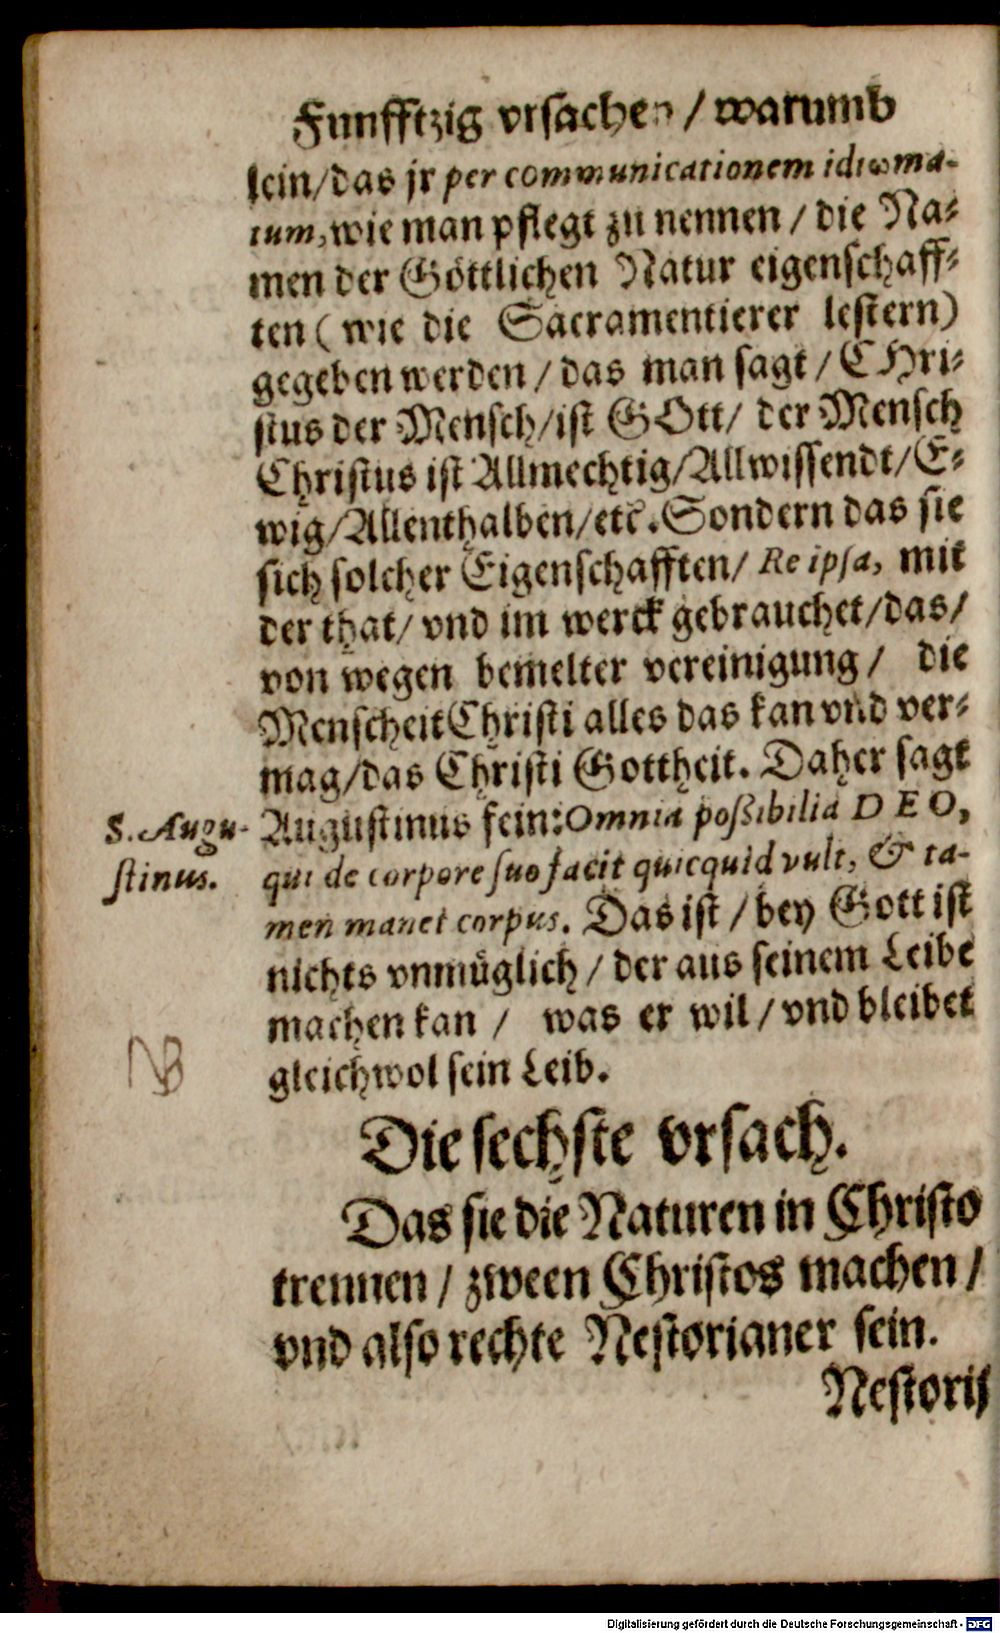 Funfftzig vrsachen / warumb
lein/das jr per communicationem idiωma-
tum, wie man pflegt zu nennen / die Na-
men der Göttlichen Natur eigenschaff-
ten ( wie die Sacramentierer lestern)
gegeben werden / das man sagt / CHri-
stus der Mensch/ist GOtt/ der Mensch
Christus ist Allmechtig/Allwissendt/E-
wig/Allenthalben/etc. Sondern das sie
sich solcher Eigenschafften/ Re ipsa, mit
der that/ vnd im werck gebrauchet/das/
von wegen bemelter vereinigung / die
Menscheit Christi alles das kan vnd ver-
mag/das Christi Gottheit. Daher sagt
S. Augu-
stinus.
Augustinus fein: Omnia poßibilia DEO,
qui de corpore suo facit quicquid vult, & ta-
men manet corpus. Das ist / bey Gott ist
nichts vnmüglich / der aus seinem Leibe
machen kan / was er wil / vnd bleibet
NB
gleichwol sein Leib.
Die sechste vrsach.
Das sie die Naturen in Christo
trennen / zween Christos machen /
vnd also rechte Nestorianer sein.
Nestorij
Digitalisierung gefördert durch die Deutsche Forschungsgemeinschaft - DFG